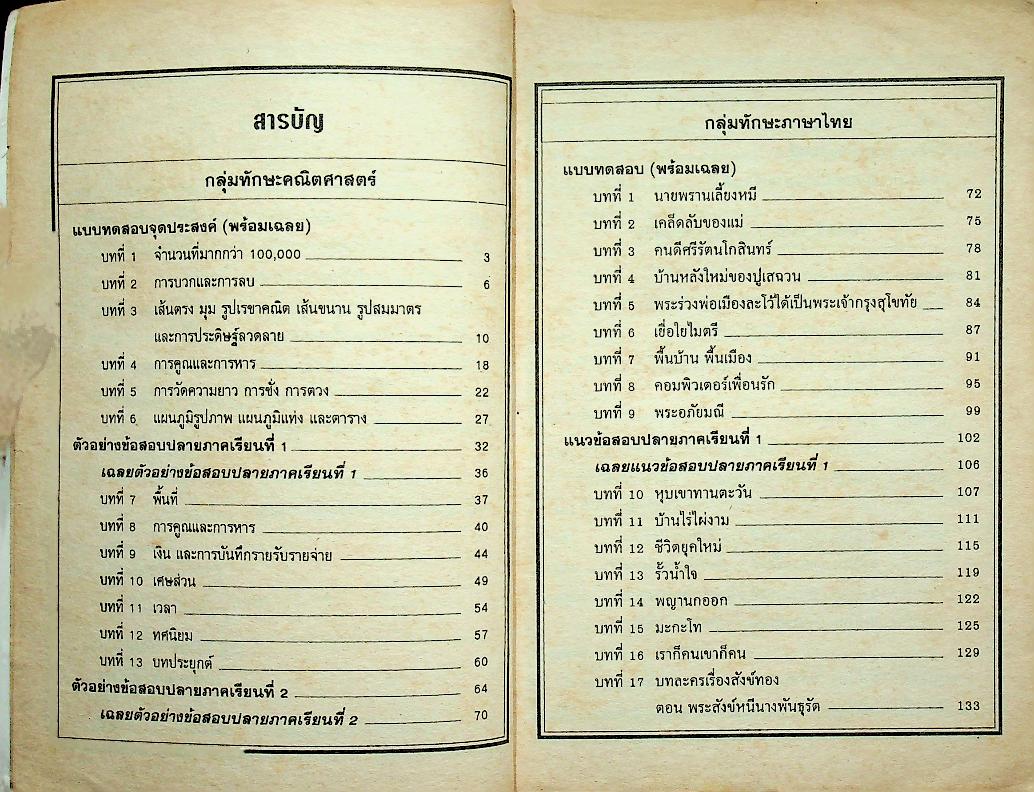 สารบัญ
กลุ่มทักษะคณิตศาสตร์
แบบทดสอบจุดประสงค์ (พร้อมเฉลย)
บทที่ 1 จำนวนที่มากกว่า 100,000 3
บทที่ 2 การบวกและการลบ 6
บทที่ 3 เส้นตรง มุม รูปเรขาคณิต เส้นขนาน รูปสมมาตร
และการประดิษฐ์ลวดลาย 10
บทที่ 4 การคูณและการหาร 18
บทที่ 5 การวัดความยาว การชั่ง การตวง 22
บทที่ 6 แผนภูมิรูปภาพ แผนภูมิแท่ง และตาราง 27
ตัวอย่างข้อสอบปลายภาคเรียนที่ 1 32
เฉลยตัวอย่างข้อสอบปลายภาคเรียนที่ 1 36
บทที่ 7 พื้นที่ 37
บทที่ 8 การคูณและการหาร 40
บทที่ 9 เงิน และการบันทึกรายรับรายจ่าย 44
บทที่ 10 เศษส่วน 49
บทที่ 11 เวลา 54
บทที่ 12 ทศนิยม 57
บทที่ 13 บทประยุกต์ 60
ตัวอย่างข้อสอบปลายภาคเรียนที่ 2 64
เฉลยตัวอย่างข้อสอบปลายภาคเรียนที่ 2 70
กลุ่มทักษะภาษาไทย
แบบทดสอบ (พร้อมเฉลย)
บทที่ 1 นายพรานเลี้ยงหมี 72
บทที่ 2 เคล็ดลับของแม่ 75
บทที่ 3 คนดีศรีรัตนโกสินทร์ 78
บทที่ 4 บ้านหลังใหม่ของปูเสฉวน 81
บทที่ 5 พระร่วงพ่อเมืองละโว้ได้เป็นพระเจ้ากรุงสุโขทัย 84
บทที่ 6 เยื่อใยไมตรี 87
บทที่ 7 พื้นบ้าน พื้นเมือง 91
บทที่ 8 คอมพิวเตอร์เพื่อนรัก 95
บทที่ 9 พระอภัยมณี 99
แนวข้อสอบปลายภาคเรียนที่ 1 102
เฉลยแนวข้อสอบปลายภาคเรียนที่ 1 106
บทที่ 10 หุบเขาทานตะวัน 107
บทที่ 11 บ้านไร่ไผ่งาม 111
บทที่ 12 ชีวิตยุคใหม่ 115
บทที่ 13 รั้วน้ำใจ 119
บทที่ 14 พญานกออก 122
บทที่ 15 มะกะโท 125
บทที่ 16 เราก็คนเขาก็คน 129
บทที่ 17 บทละครเรื่องสังข์ทอง
ตอน พระสังข์หนีนางพันธุรัต 133